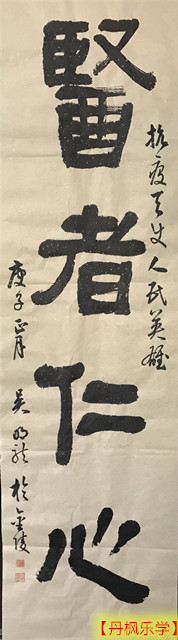 醫者仁心
抗疫天使人民英雄
庚子正月
吴明龙於金陵
【丹枫乐学】